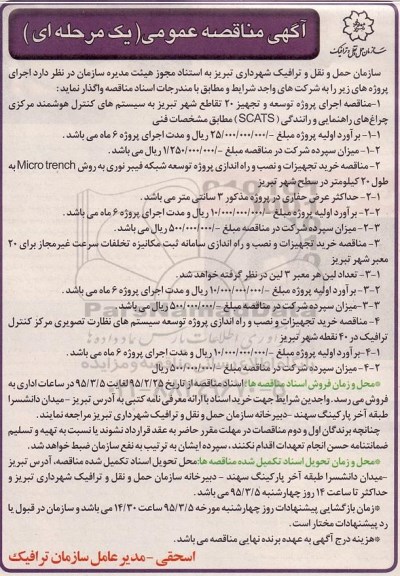 آگهی مناقصه عمومی( یک مرحله ای )
سازمان حمل و نقل و ترافیک
سازمان حمل و نقل و ترافیک شهرداری تبریز به استناد مجوز هیئت مدیره سازمان در نظر دارد اجرای
پروژه های زیر را به شرکت های واجد شرایط و مطابق با مندرجات اسناد مناقصه واگذار نماید:
۱-مناقصه اجرای پروژه توسعه و تجهیز ۲۰ تقاطع شهر تبریز به سیستم های کنترل هوشمند مرکزی
چراغ‌های راهنمایی و رانندگی ( SCATS ) مطابق مشخصات فنی
۱-۱- برآورد اولیه پروژه مبلغ -/۲۵/۰۰۰/۰۰۰/۰۰۰ ریال و مدت اجرای پروژه ۶ ماه می باشد.
۲-۱- میزان سپرده شرکت در مناقصه مبلغ -/۱/۲۵۰/۰۰۰/۰۰۰ ریال می باشد.
۲- مناقصه خرید تجهیزات و نصب و راه اندازی پروژه توسعه شبکه فیبر نوری به روش Micro trench به
طول ۲۰ کیلومتر در سطح شهر تبریز
۱-۲- حداکثر عرض حفاری در پروژه مذکور ۳ سانتی متر می باشد.
۲-۲- برآورد اولیه پروژه مبلغ -/۱۰/۰۰۰/۰۰۰/۰۰۰ ریال و مدت اجرای پروژه ۶ ماه می باشد.
۳-۲- میزان سپرده شرکت در مناقصه مبلغ -/۵۰۰/۰۰۰/۰۰۰ ریال می باشد.
۳- مناقصه خرید تجهیزات و نصب و راه اندازی سامانه ثبت مکانیزه تخلفات سرعت غیرمجاز برای ۲۰
معبر شهر تبریز
۱-۳- تعداد لین هر معبر ۳ لین در نظر گرفته خواهد شد.
۲-۳- برآورد اولیه پروژه مبلغ -/۱۰/۰۰۰/۰۰۰/۰۰۰ ریال و مدت اجرای پروژه ۶ ماه می باشد.
۳-۳- میزان سپرده شرکت در مناقصه مبلغ -/۵۰۰/۰۰۰/۰۰۰ ریال می باشد.
۴- مناقصه خرید تجهیزات و نصب و راه اندازی پروژه توسعه سیستم های نظارت تصویری مرکز کنترل
ترافیک در ۴۰ نقطه شهر تبریز
۱-۴- برآورد اولیه پروژه مبلغ -/۱۰/۰۰۰/۰۰۰/۰۰۰ ریال و مدت اجرای پروژه ۶ ماه می باشد.
۲-۴- میزان سپرده شرکت در مناقصه مبلغ -/۵۰۰/۰۰۰/۰۰۰ ریال می باشد.
*محل و زمان فروش اسناد مناقصه ها: اسناد مناقصه از تاریخ ۹۵/۲/۲۵ لغایت ۹۵/۳/۵ در ساعات اداری به
فروش می رسد. واجدین شرایط جهت خرید اسناد با ارائه معرفی نامه کتبی به آدرس تبریز - میدان دانشسرا
طبقه آخر پارکینگ سهند -دبیرخانه سازمان حمل و نقل و ترافیک شهرداری تبریز مراجعه نمایند.
چنانچه برندگان اول و دوم مناقصات در مهلت مقرر حاضر به عقد قرارداد نشوند یا نسبت به تهیه و تسلیم
ضمانتنامه حسن انجام تعهدات اقدام نکنند، سپرده ایشان به ترتیب به نفع سازمان ضبط خواهد شد.
*محل و زمان تحویل اسناد تکمیل شده مناقصه ها: محل تحویل اسناد تکمیل شده مناقصه، آدرس تبریز
-میدان دانشسرا طبقه آخر پارکینگ سهند - دبیرخانه سازمان حمل و نقل و ترافیک شهرداری تبریز و
حداکثر تا ساعت ۱۴ روز چهارشنبه ۹۵/۳/۵ می باشد.
*زمان بازگشایی پیشنهادات روز چهارشنبه مورخه ۹۵/۳/۵ ساعت ۱۴/۳۰ می باشد و سازمان در قبول یا
رد پیشنهادات مختار است.
*هزینه درج آگهی به عهده برنده نهایی مناقصه می باشد.
اسحقی -مدیر عامل سازمان ترافیک